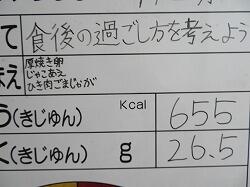 て 食後の過ごし方を考えよう
まえ 厚焼き卵
じゃこあえ
ひき肉ごまじゃが
う(きじゅん) Kcal 655
く(きじゅん) g 26.5